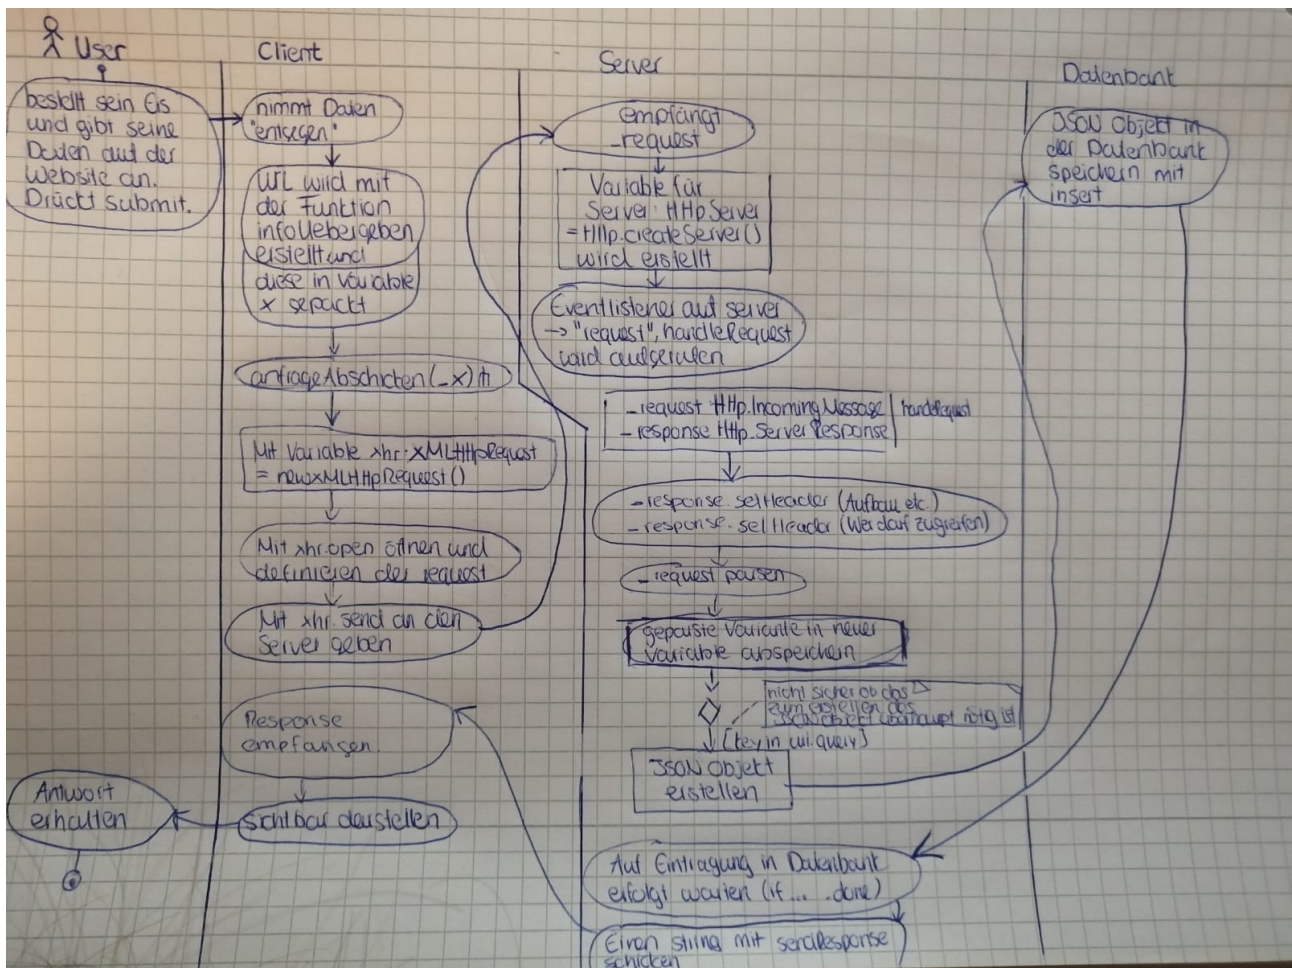 User
bestellt sein Eis
und gibt seine
Daten auf der
Website an.
Drückt submit.
Antwort
erhalten
Client
nimmt Daten
"entgegen"
URL wird mit
der Funktion
infoUebergeben
erstellt und
diese in Variable
x gepackt
anfrageAbschicken(_x)
Mit Variable xhr: XMLHttpRequest
= new XMLHttpRequest()
Mit xhr.open öffnen und
definieren des request
Mit xhr.send an den
Server geben
Response
empfangen.
sichtbar darstellen
Server
empfängt
_request
Variable für
Server: Http.Server
= Http.createServer()
wird erstellt
Eventlistener auf server
→ "request", handleRequest
wird aufgerufen
_request Http.IncomingMessage
_response Http.ServerResponse
handleRequest
_response.setHeader (Aufbau etc.)
_response.setHeader (Wer darf zugreifen)
_request parsen
geparste Variante in neuer
Variable abspeichern
nicht sicher ob das
zum erstellen des
JSON Objekt überhaupt nötig ist
[key in url.query]
JSON Objekt
erstellen
Auf Eintragung in Datenbank
erfolgt warten (if ... .done)
Einen string mit sendResponse
schicken
Datenbank
JSON Objekt in
der Datenbank
speichern mit
insert